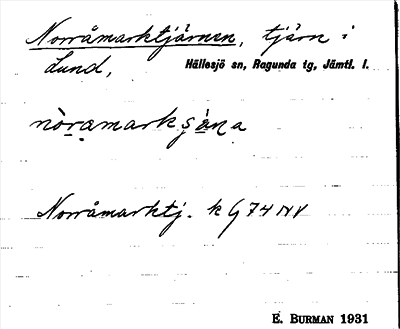 Norråmarktjärnen, tjärn i
Lund, Hällesjö sn, Ragunda tg, Jämtl. l.
nòramarkʂäṇa
Norråmarktj. k G 74 NV
E. BURMAN 1931